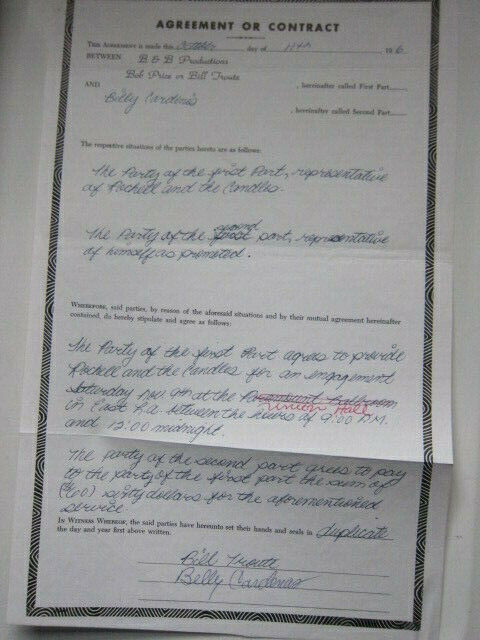 AGREEMENT OR CONTRACT
THIS AGREEMENT is made this October day of 11th 196
BETWEEN B & B Productions
Bob Price or Bill Trout , hereinafter called First Part
AND Billy Cardenas , hereinafter called Second Part
The respective situations of the parties hereto are as follows:
The Party of the first Part, representative
of Rochell and the Candles.
second
The Party of the first part, representative
of himself as promoted.
WHEREFORE, said parties, by reason of the aforesaid situations and by their mutual agreement hereinafter
contained, do hereby stipulate and agree as follows:
The Party of the first Part agrees to provide
Rochell and the Candles for an engagement
Saturday Nov. 9th at the Paramount Ballroom
Union Hall
in East L.A. between the hours of 9:00 P.M.
and 12:00 midnight.
The party of the second part grees to pay
to the party of the first part the sum of
(60) sixty dollars for the aforementioned
service
IN WITNESS WHEREOF, the said parties have hereunto set their hands and seals in duplicate
the day and year first above written.
Bill Trout
Billy Cardenas